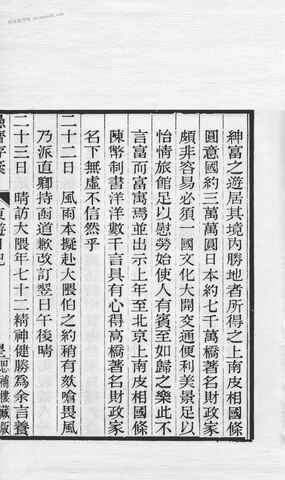 紳富之遊居其境內勝地者所得之上南皮相國條
圓意國約三萬萬圓日本約七千萬圓高橋著名財政家
頗非容易必須一國文化大開交通便利美景足以
怡情旅館足以慰勞始使人有賓至如歸之樂此不
言富而富寓焉並出示上年至北京上南皮相國條
陳幣制書洋洋數千言具有心得高橋著名財政家
名下無虛不信然乎
二十二日　風雨本擬赴大隈伯之約稍有欬嗆畏風
乃派直卿持函道歉改訂翌日午後晴
二十三日　晴訪大隈年七十二精神健勝為余言養
東遊日記
思補樓藏版